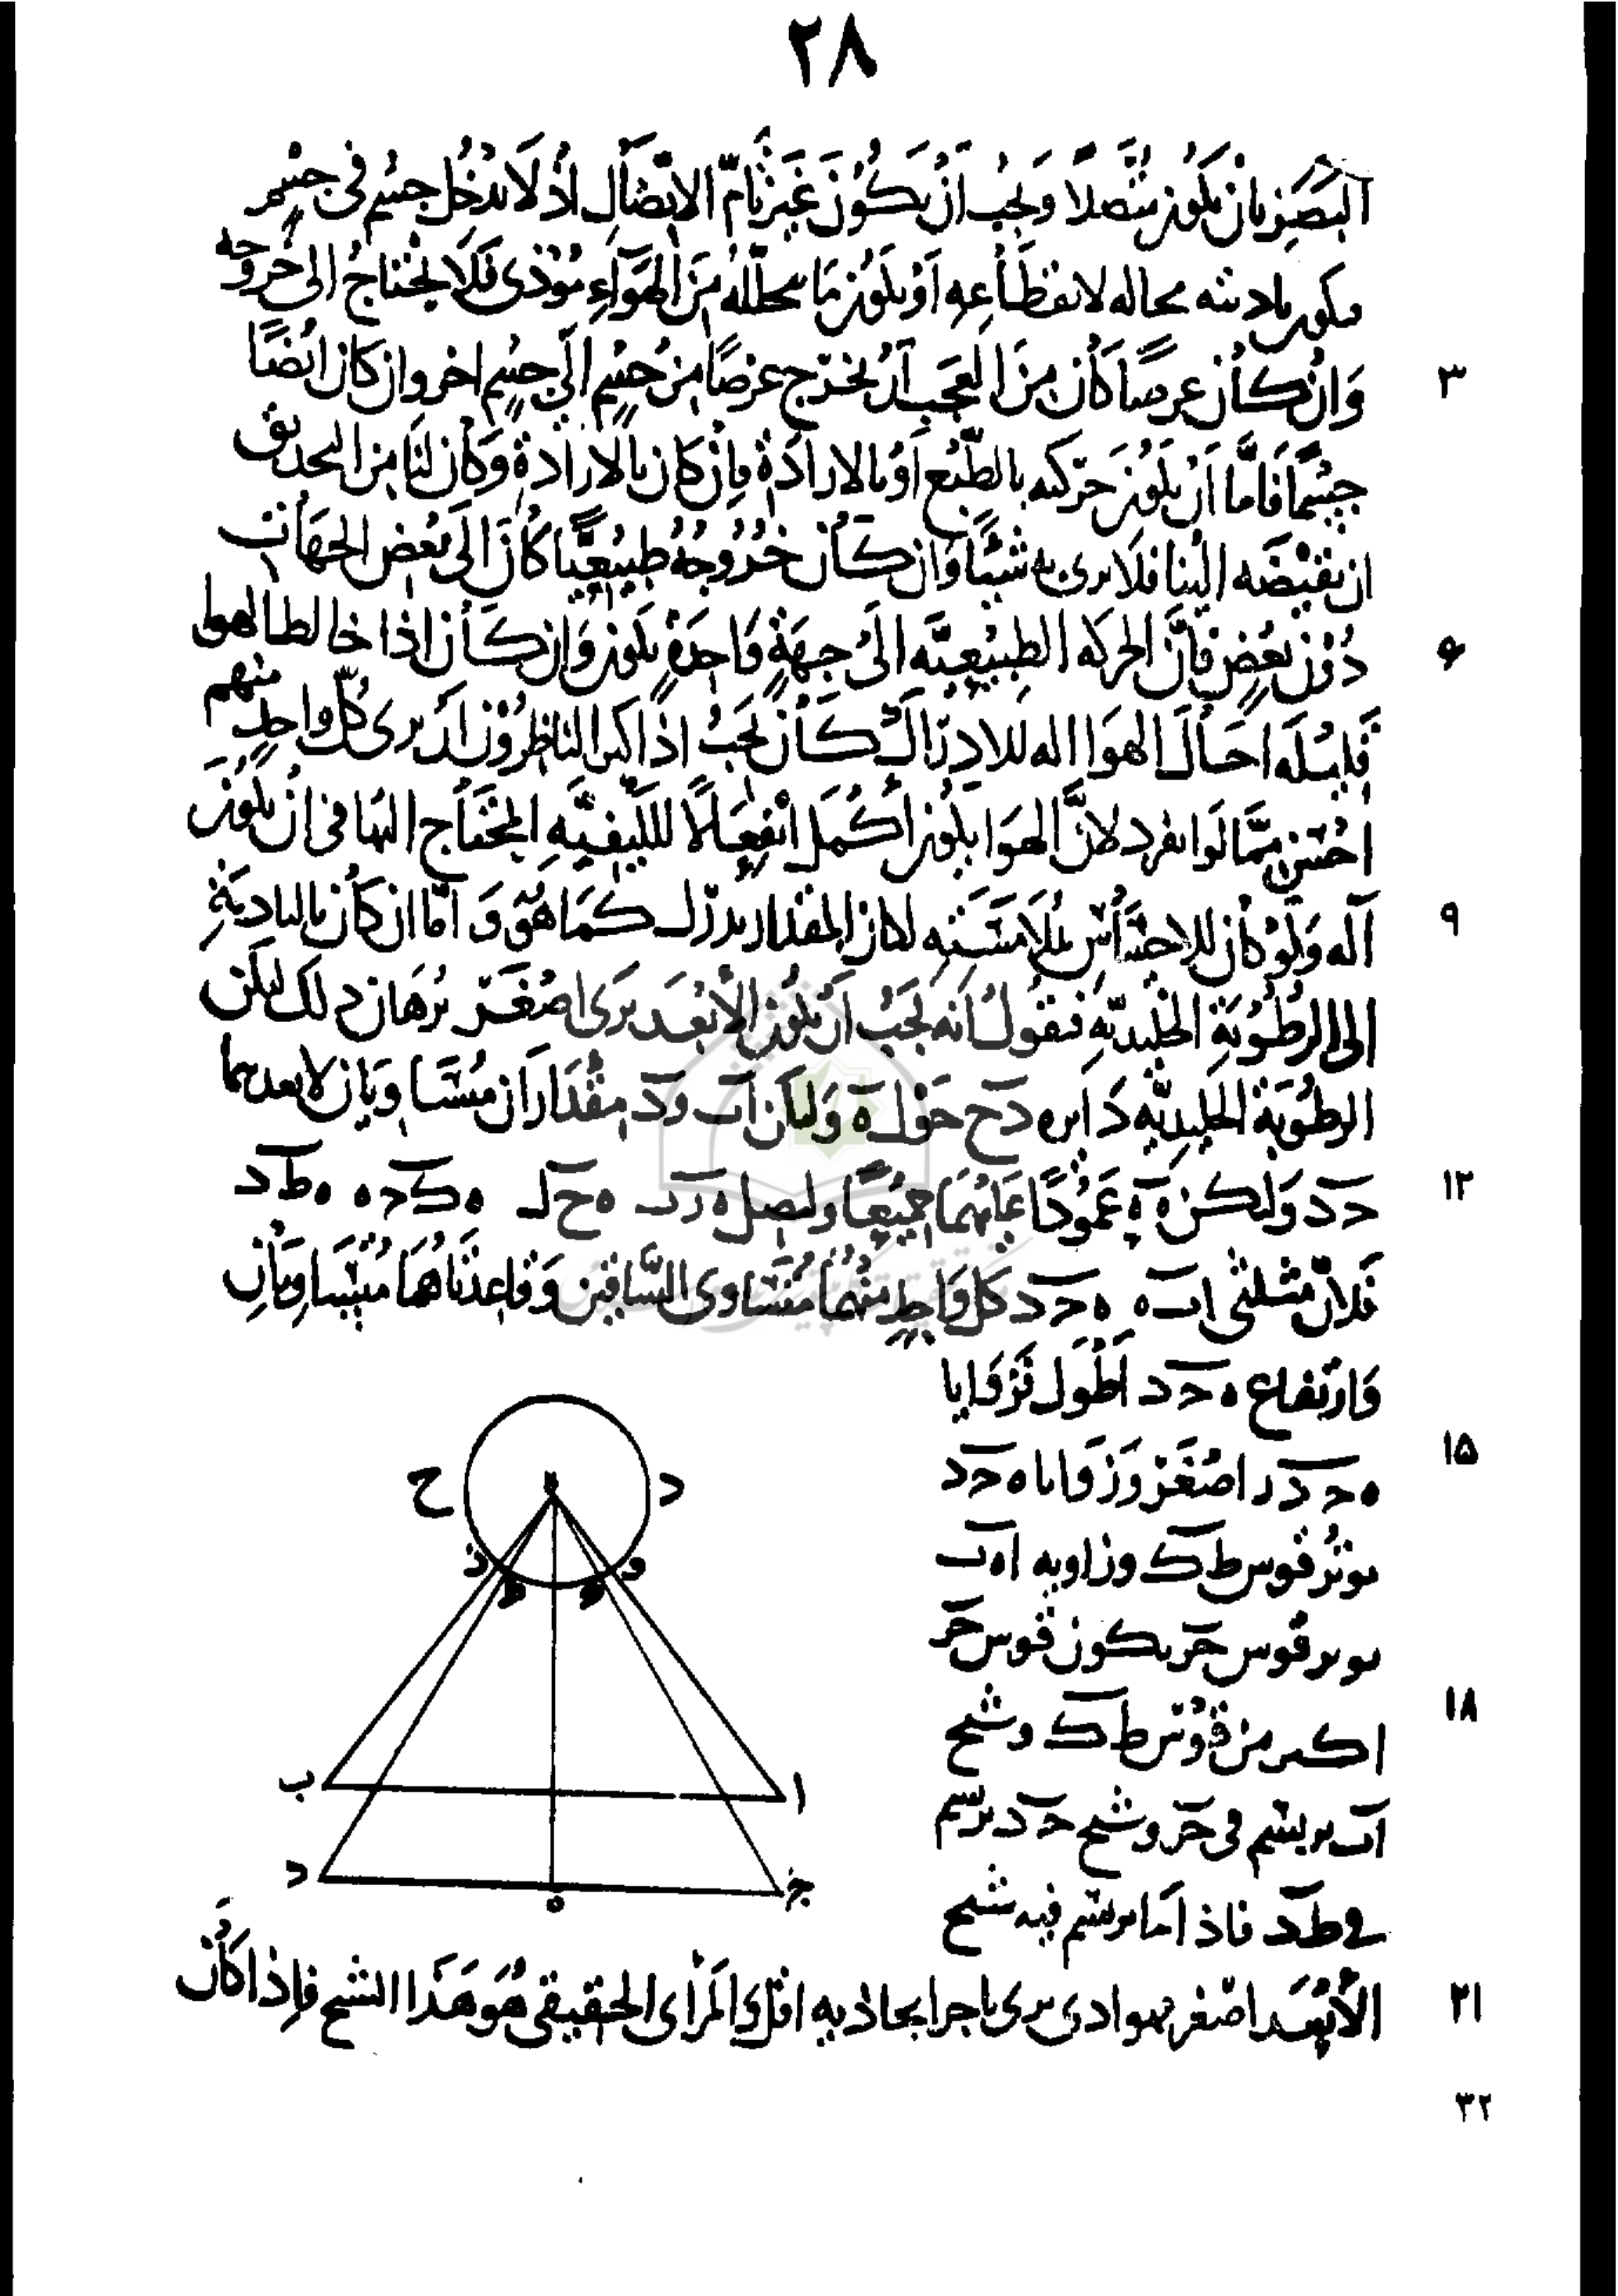 ٢٨
البصر بان يكون متصلا وَيجب اَنْ يَكُونَ غَيرَ تامّ الاتّصَالِ اذْ لَا يَدْخُل جسْم فى جسْم
فيكون تاديته محاله لانقطَاعِه اَوْ يكون مَا يحلّله مِنَ الهَوَآءِ مُؤدّى فَلَا يَحْتاجُ الى خُروجه
٣ وَانْ كَانَ عرضًا كَانَ مِنَ العَجَب اَنْ يخرج عَرضًا مِنْ جِسْم اِلَى جِسْم اخر وان كان ايْضًا
جِسْمًا فَامَّا اَنْ يكون حَركته بالطّبْع اَوْ بالارادَة فاِنْ كان بالارادة وَكَان لنَا مِن التحديق
ان نقبْضَه اليْنا فلا يرى به شيْئًا وَان كَانَ خُرُوجُهُ طبِيْعِيًّا كَانَ اِلَى بَعْض الجهَات
٦ دُوْن بَعْضٍ فاِنَّ الحركه الطبِيْعِيَّه اِلَى جِهَةٍ وَاحِدَةٍ يكون وَان كَانَ اذا خالط الهوا
قَلِيلَه احَالَ الهوَا اله للادراك كَانَ يجبُ اذَا كثر الناظِرُوْن اَن يرى كُلّ واحِدٍ منهم
احْسَن ممّا لَو انفرد لانَّ الهوَا يكون اَكْمَل انْفِعَالًا للكيْفيَّهِ المحْتَاج اليهَا فى انْ يكون
٩ آله وَلَوْ كَان للاحسَاس بمُلَامَسَتِهِ لكان المقدار يدرك كَمَا هُوَ وَامّا ان كَانَ بالتاديَةِ
الى الرُطُوْبَةِ الجليديّهِ فنقُولُ انه يَجبُ اَنْ يكون الْاَبْعَد يَرَى اصْغَر بُرهَان ذلك ليكن
الرطُوبَة الجليديّه دَايره دح حَوْل ه وَليكن اب وَ حد مِقْدَارَان مُتَسَاويان لابعد هما
١٢ حد وَليكن ه ه عَمُوْدًا عَليهِمَا جميْعًا ولنصل ه رب ه ح ا ه ك ح ه ه ط د
فلانّ مثلثى اب ه ه حد كل وَاحِدٍ منهُمَا مُتَسَاوى السّاقين وَقاعدتَاهُمَا مُتَسَاويتان
وَارتفاع ه حد اَطْوَل فَزَوَايا
١٥ ه حد اصْغَر وَزَوَايا ه حد
يوتر قوس ط ك وزاويه اه ب
يوتر قوس حر يكون قوس حر
١٨ اكبر من قَوْس ط ك وشبح
اب يرتسم فى حر وشبح حد يرتسم
فى ط ك فاذا مَا يرتسم فيه شبح
٢١ الْاَبْعَد اصْغر فهو اذى يرى باجزا يحاذيه اقل وَالمَرْاى الحقيقى هُوَ هَذَا الشبح فاِذَا كَانَ
٣٢
ح
د
ه
ز
و
ط
ب
ا
د
ج
ه